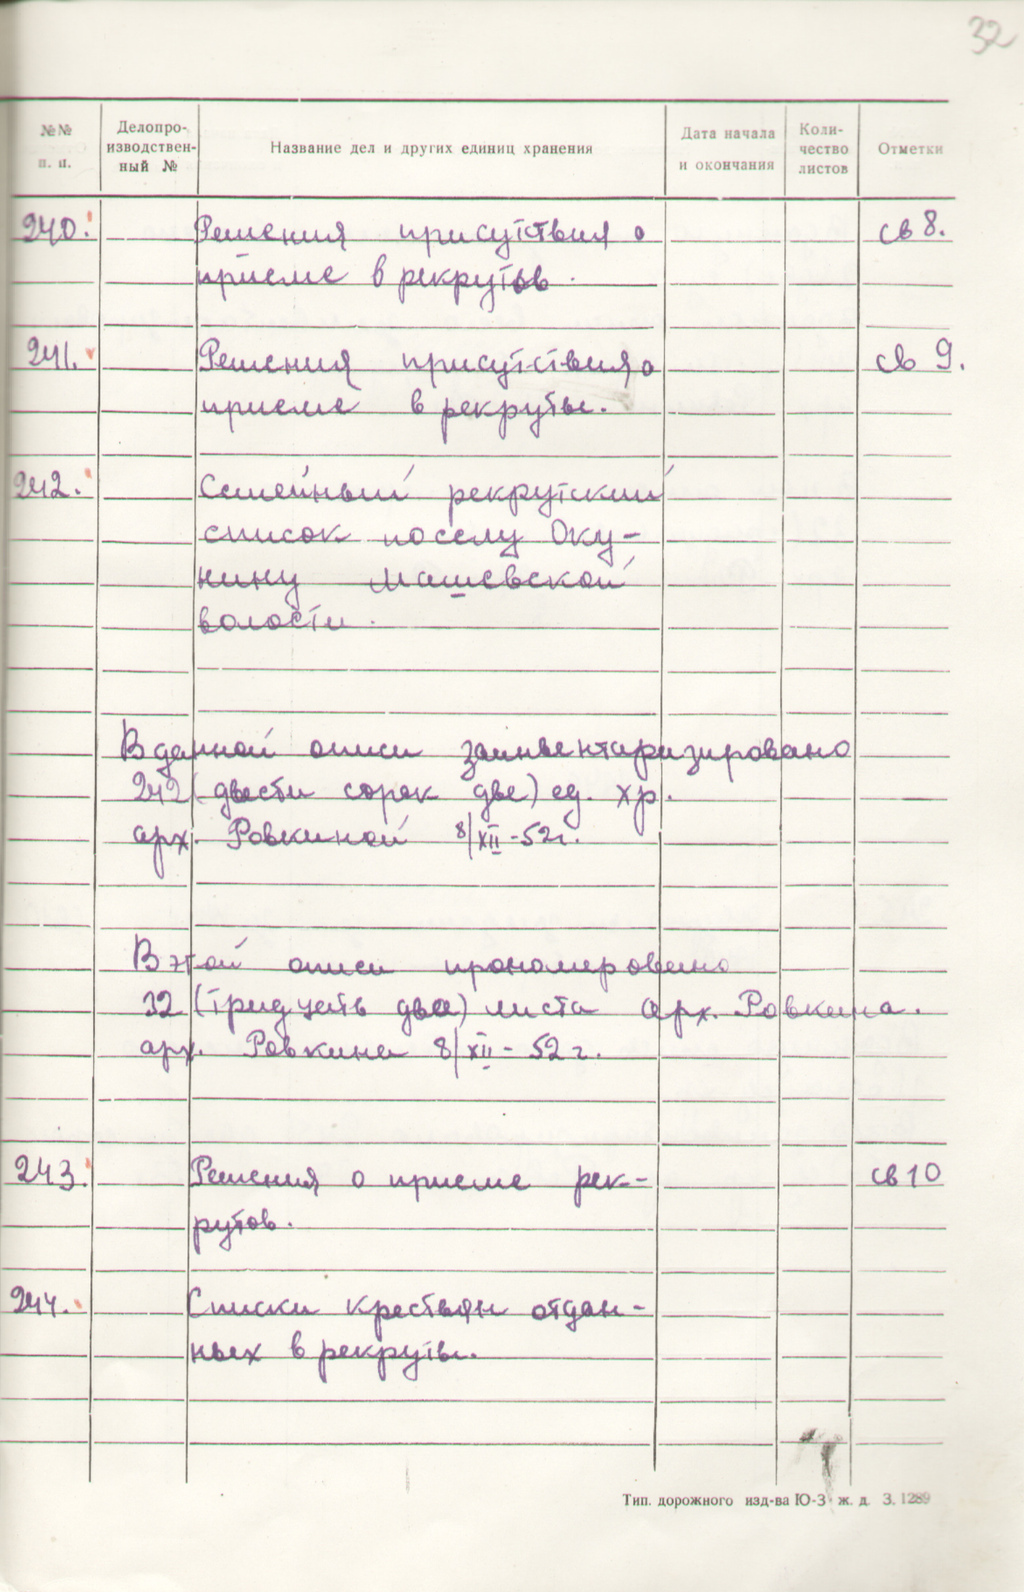 32
№№ п. п. Делопро-изводствен-ный № Название дел и других единиц хранения Дата начала и окончания Коли-чество листов Отметки
240. Решения присутствия о св 8.
приеме в рекрутов.
241. Решения присутствия о св 9.
приеме в рекруты.
242. Семейный рекрутский
список по селу Оку-
нину Машевской
волости.
В данной описи заинвентаризировано
242 (двести сорок две) ед. хр.
арх. Ровкиной 8/XII-52г.
В этой описи прономеровано
32 (тридцать два) листа арх. Ровкина.
арх. Ровкина 8/XII-52г.
243. Решения о приеме рек- св 10
рутов.
244. Списки крестьян отдан-
ных в рекруты.
Тип. дорожного изд-ва Ю-З ж. д. З. 1289